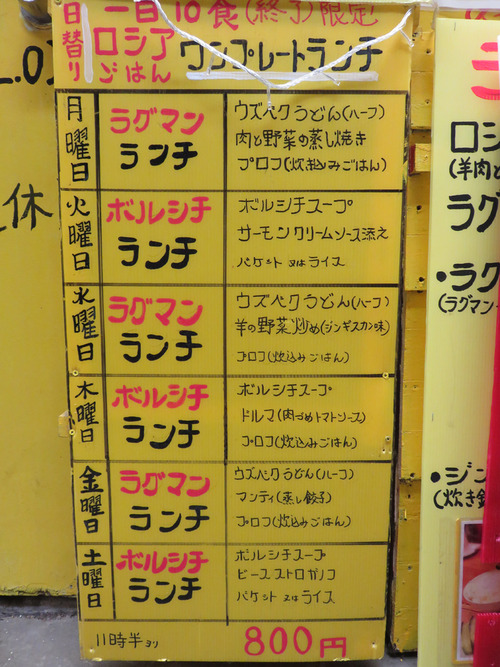 日替り
一日10食(終了)限定
ロシアごはん
ワンプレートランチ
月曜日
ラグマン
ランチ
ウズベクうどん(ハーフ)
肉と野菜の蒸し焼き
プロフ(炊き込みごはん)
火曜日
ボルシチ
ランチ
ボルシチスープ
サーモンクリームソース添え
バケット又はライス
水曜日
ラグマン
ランチ
ウズベクうどん(ハーフ)
羊の野菜炒め(ジンギスカン味)
プロフ(炊込みごはん)
木曜日
ボルシチ
ランチ
ボルシチスープ
ドルマ(肉づめトマトソース)
プロフ(炊込みごはん)
金曜日
ラグマン
ランチ
ウズベクうどん(ハーフ)
マンティ(蒸し餃子)
プロフ(炊込みごはん)
土曜日
ボルシチ
ランチ
ボルシチスープ
ビーフストロガノフ
バケット又はライス
11時半ヨリ
800円
休
ロシ
(羊肉と
ラグ
・ラク
(ラグマン
・ジン
(炊き